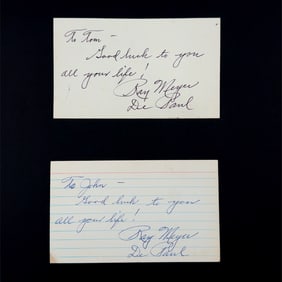 To Tom -
Good luck to you
all your life!
Ray Meyer
De Paul
To John -
Good luck to you
all your life!
Ray Meyer
De Paul